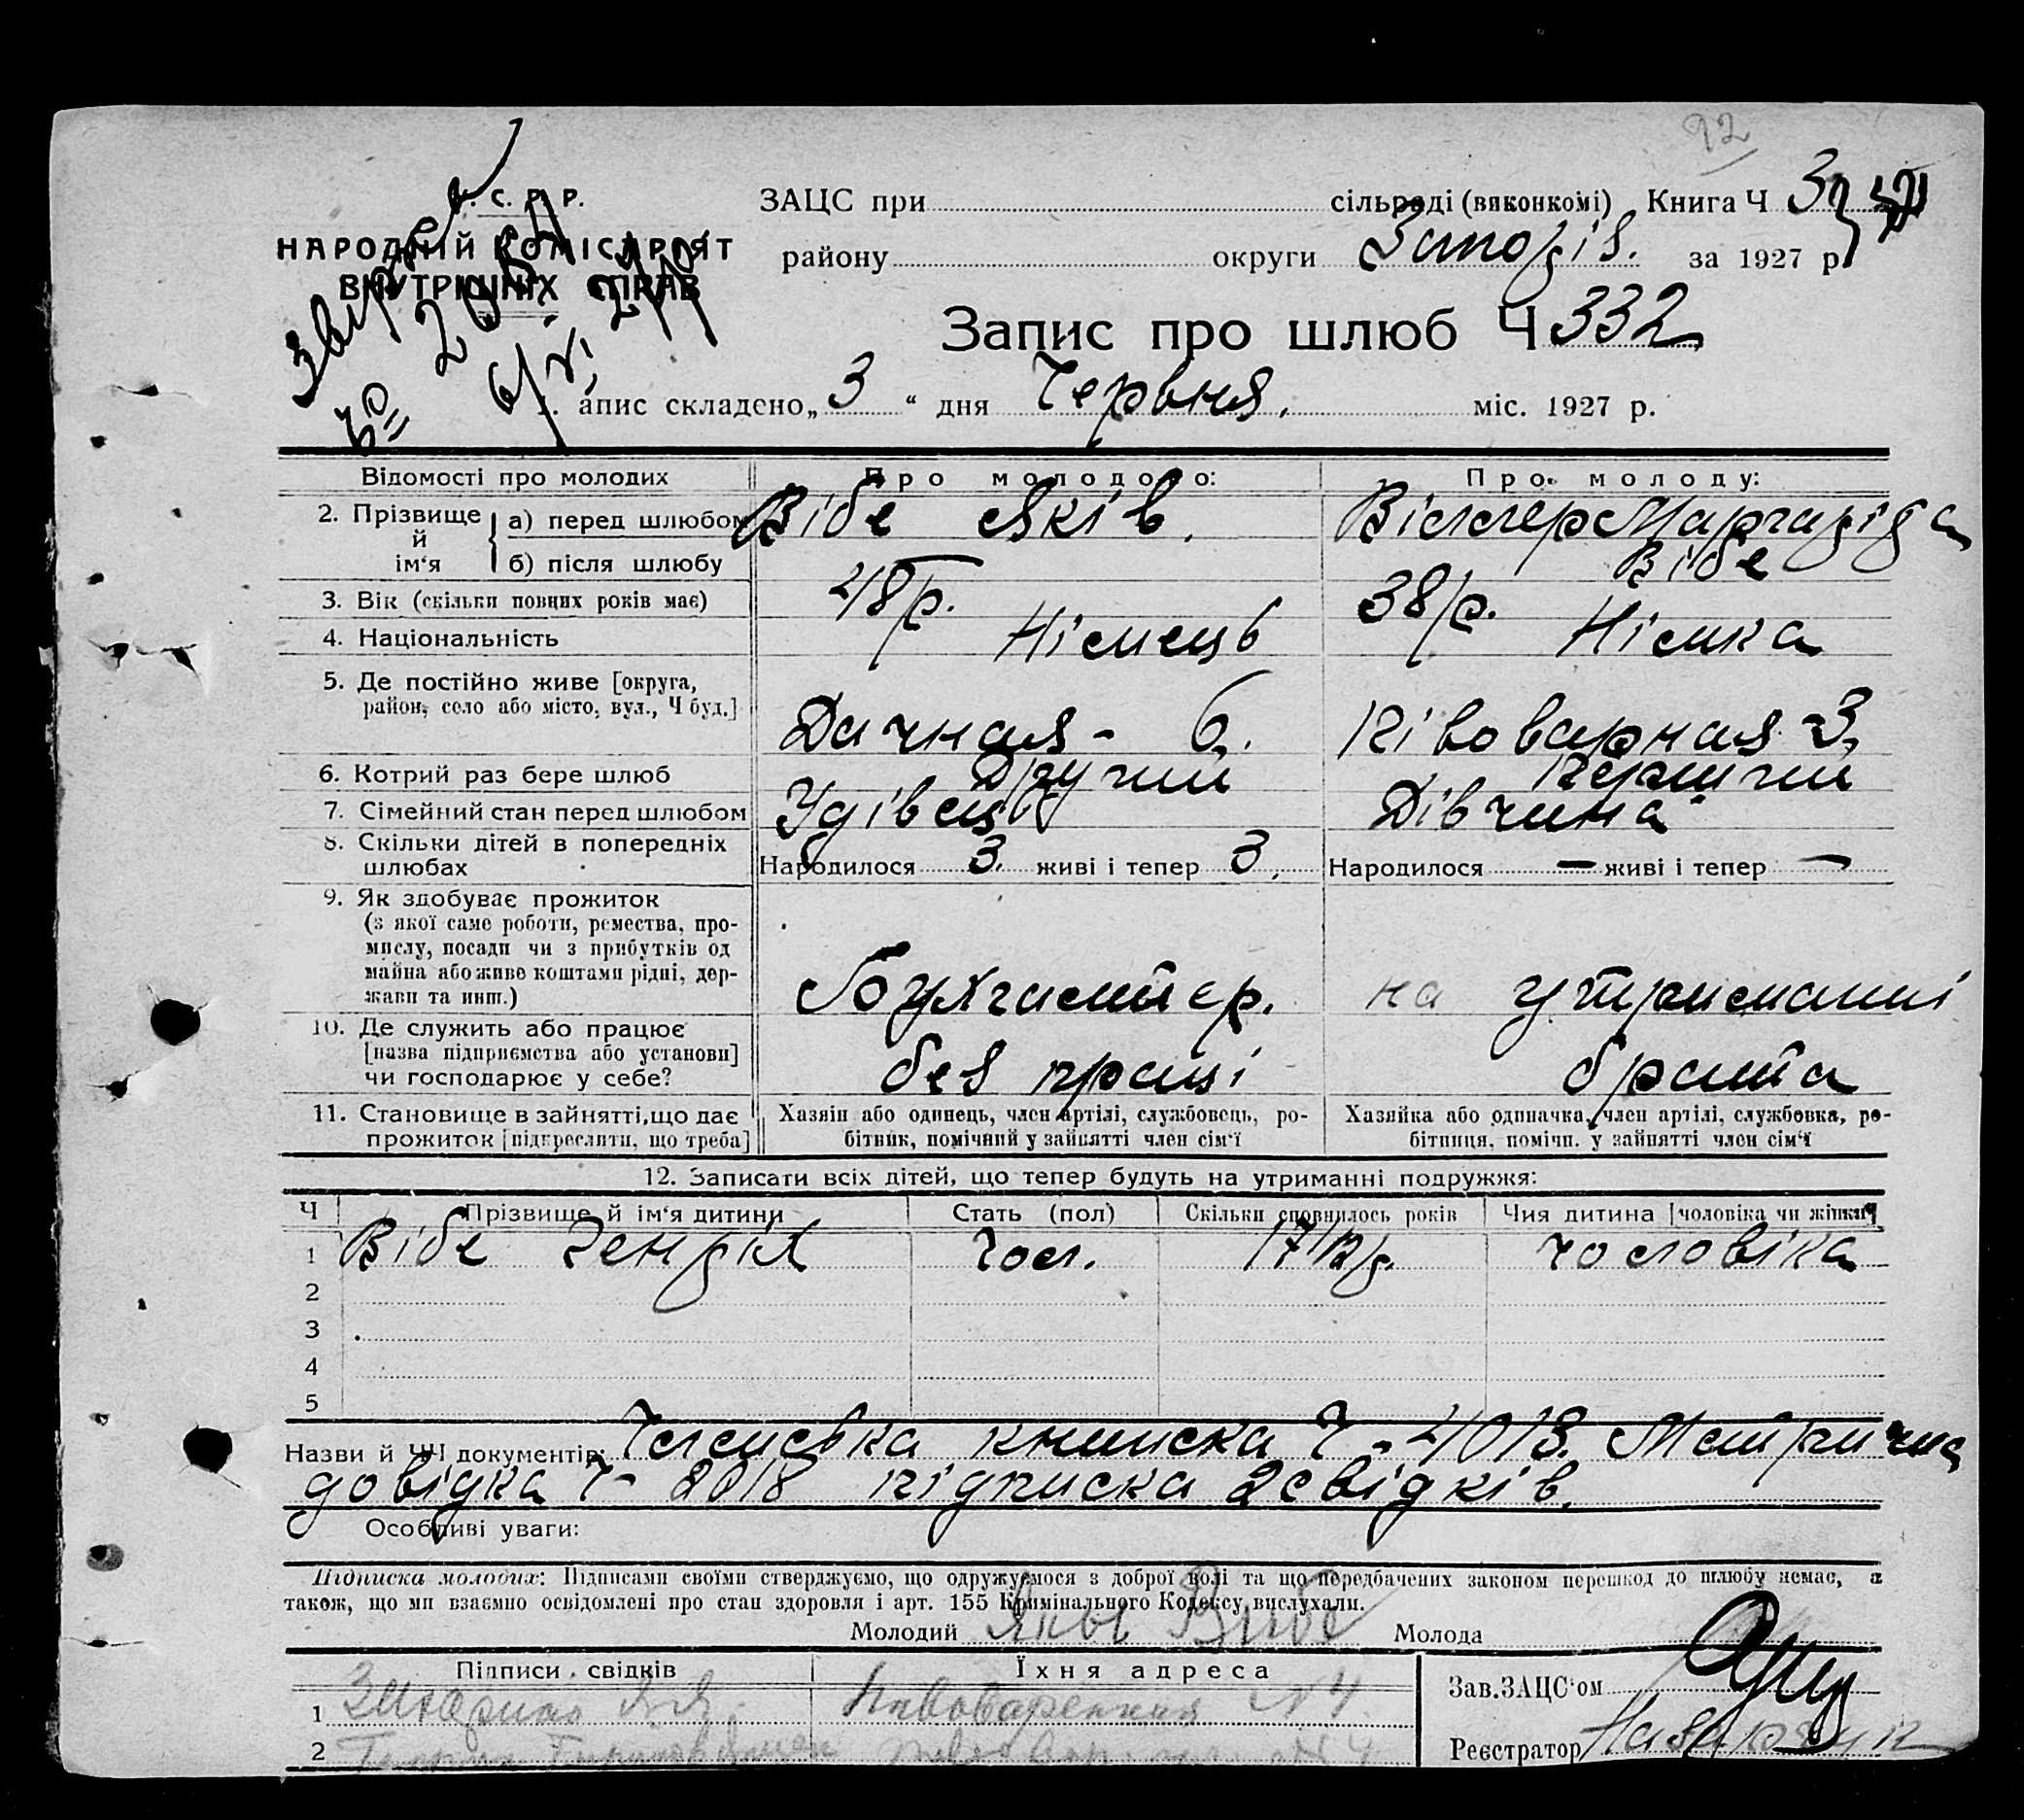 92
У. С. Р. Р.
НАРОДНІЙ КОМІСАРІЯТ
ВНУТРІШНІХ СПРАВ
ЗАЦС при сільраді (виконкомі) Книга Ч 3
району округи Запоріз. за 1927 р.
Запис про шлюб Ч 332
апис складено „3“ дня Червня. міс. 1927 р.
Відомості про молодих Про молодого: Про молоду:
2. Прізвище й ім‘я а) перед шлюбом Вібе Яків. Віллер Маргаріда
б) після шлюбу Вібе
3. Вік (скільки повних років має) 48 р. 38 р.
4. Національність Німець Німка
5. Де постійно живе [округа,
район, село або місто, вул., Ч буд.] Дачная - 6. Півоварная 3,
6. Котрий раз бере шлюб Другий перший
7. Сімейний стан перед шлюбом Удівець Дівчина
8. Скільки дітей в попередніх
шлюбах Народилося 3. живі і тепер 3. Народилося — живі і тепер —
9. Як здобуває прожиток
(з якої саме роботи, ремества, про-
мислу, посади чи з прибутків од
майна або живе коштами рідні, дер-
жави та инш.) Бухгалтер. на утриманні
10. Де служить або працює
[назва підприємства або установи]
чи господарює у себе? без праці брата
11. Становище в зайнятті, що дає
прожиток [підкреслити, що треба]
Хазяїн або одинець, член артілі, службовець, ро-
бітник, помічний у зайнятті член сім‘ї
Хазяйка або одиначка, член артілі, службовка, ро-
бітниця, помічн. у зайнятті член сім‘ї
12. Записати всіх дітей, що тепер будуть на утриманні подружжя:
Ч Прізвище й ім‘я дитини Стать (пол) Скільки сповнилось років Чия дитина [чоловіка чи жінки]
1 Вібе Генріх Чол. 17 чоловіка
2
3
4
5
Назви й ЧЧ документів: Членська книжка Ч - 4013. Метрична
довідка Ч - 2018 підписка 2 свідків.
Особливі уваги:
Підписка молодих: Підписами своїми стверджуємо, що одружуємося з доброї волі та що передбачених законом перешкод до шлюбу немає, а
також, що ми взаємно освідомлені про стан здоровля і арт. 155 Кримінального Кодексу вислухали.
Молодий Яковъ Вибе Молода
Підписи свідків Їхня адреса
Зав.ЗАЦС‘ом
1 Пивоваренная N 4.
2
Реєстратор